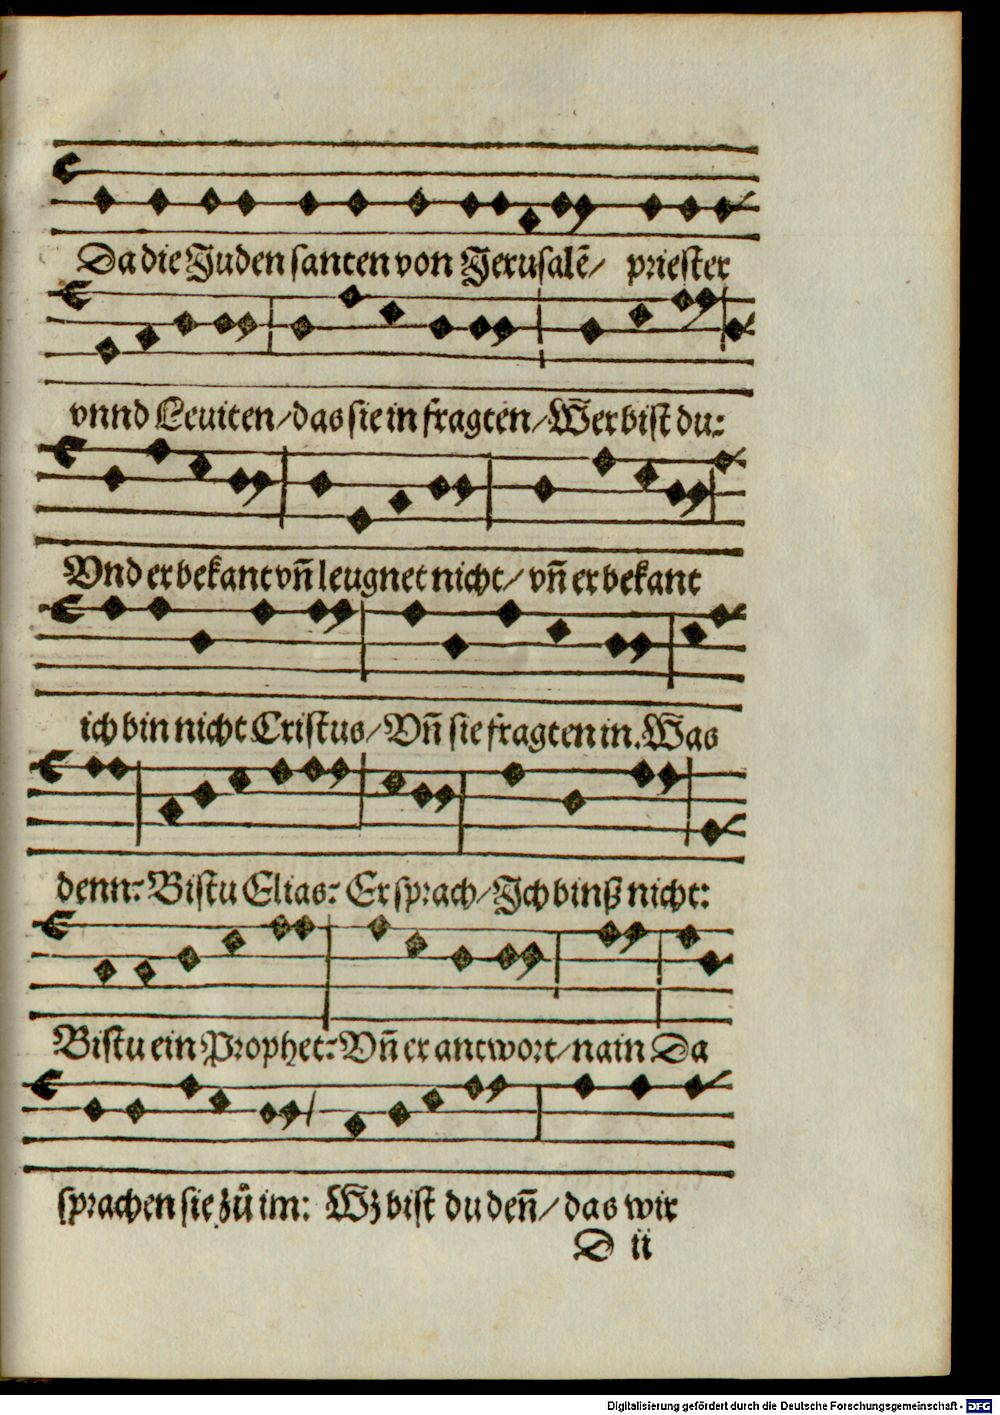 Da die Juden santen von Jerusalē/ priester
vnnd Leuiten/das sie in fragten/Wer bist du:
Vnd er bekant vn̄ leugnet nicht/ vn̄ er bekant
ich bin nicht Cristus/Vn̄ sie fragten in. Was
denn: Bistu Elias: Er sprach/Ich binß nicht:
Bistu ein Prophet: Vn̄ er antwort/nain Da
sprachen sie zů im: Wz bist du den̄/ das wir
D ii
Digitalisierung gefördert durch die Deutsche Forschungsgemeinschaft - DFG